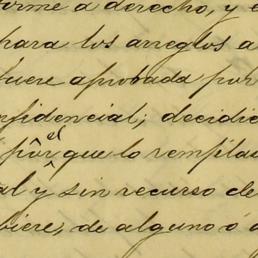 orme a derecho, y e
para los arreglos a
fuere aprobada por
nfidencial; decidie
pôr el que lo rempla
al y sin recurso de
biere, de alguno ó a